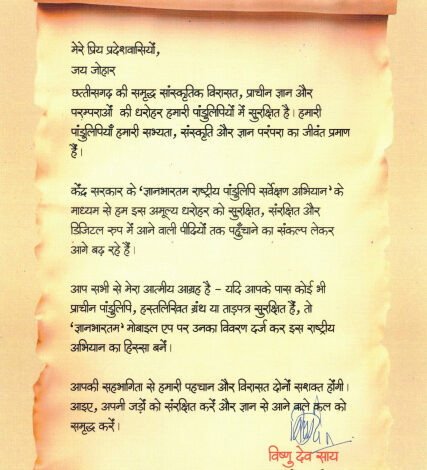 मेरे प्रिय प्रदेशवासियों,
जय जोहार
छत्तीसगढ़ की समृद्ध सांस्कृतिक विरासत, प्राचीन ज्ञान और
परम्पराओं की धरोहर हमारी पांडुलिपियों में सुरक्षित है। हमारी
पांडुलिपियाँ हमारी सभ्यता, संस्कृति और ज्ञान परंपरा का जीवंत प्रमाण
हैं।
केंद्र सरकार के 'ज्ञानभारतम राष्ट्रीय पांडुलिपि सर्वेक्षण अभियान' के
माध्यम से हम इस अमूल्य धरोहर को सुरक्षित, संरक्षित और
डिजिटल रुप में आने वाली पीढ़ियों तक पहुँचाने का संकल्प लेकर
आगे बढ़ रहे हैं।
आप सभी से मेरा आत्मीय आग्रह है – यदि आपके पास कोई भी
प्राचीन पांडुलिपि, हस्तलिखित ग्रंथ या ताड़पत्र सुरक्षित हैं, तो
'ज्ञानभारतम' मोबाइल एप पर उनका विवरण दर्ज कर इस राष्ट्रीय
अभियान का हिस्सा बनें।
आपकी सहभागिता से हमारी पहचान और विरासत दोनों सशक्त होंगी।
आइए, अपनी जड़ों को संरक्षित करें और ज्ञान से आने वाले कल को
समृद्ध करें।
विष्णु देव साय